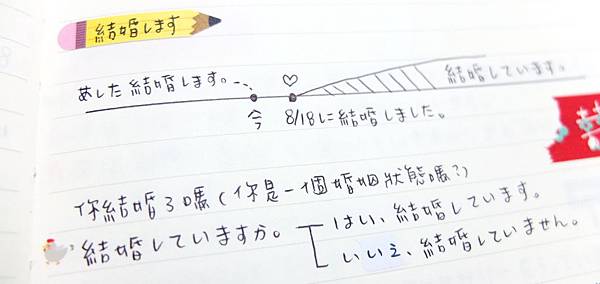 結婚します
あした結婚します。
結婚しています。
今
8/18に結婚しました。
你結婚了嗎(你是一個婚姻狀態嗎?)
結婚していますか。
はい、結婚しています。
いいえ、結婚していません。